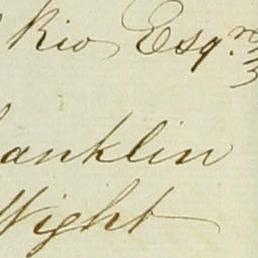 Rio Esqrs
anklin
Wight